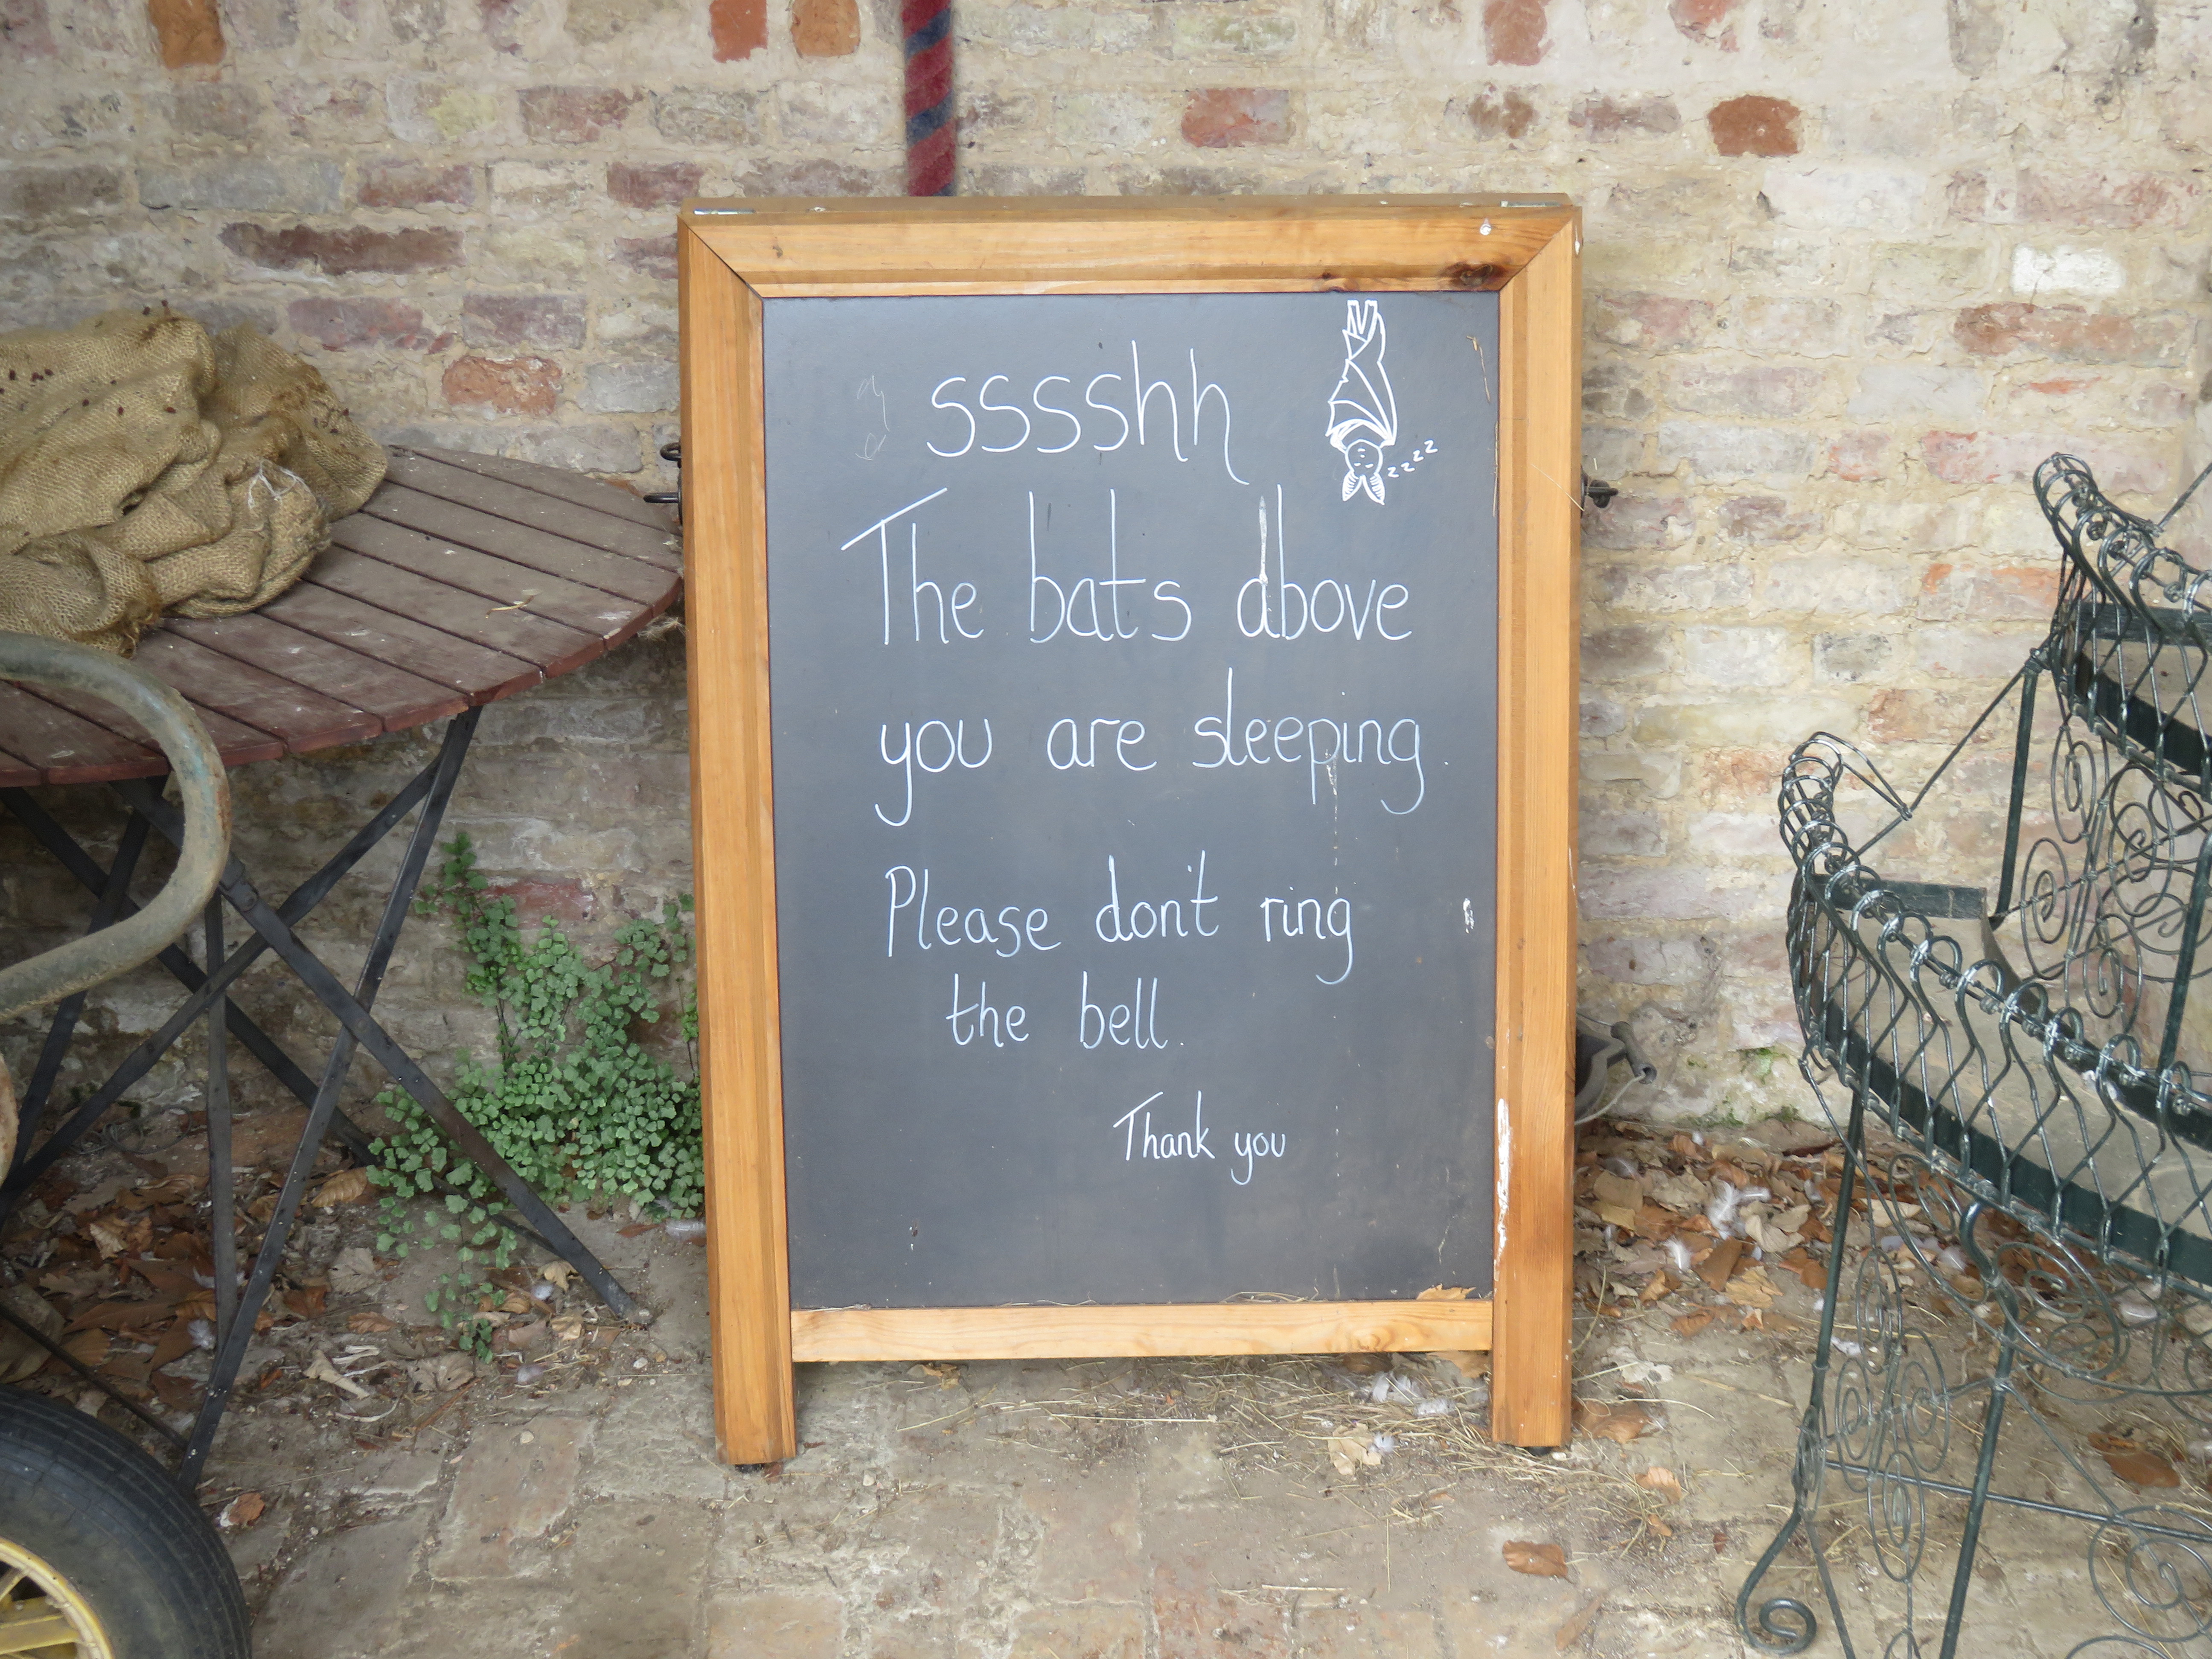 sssshh
zzzz
The bats above
you are sleeping.
Please don't ring
the bell.
Thank you